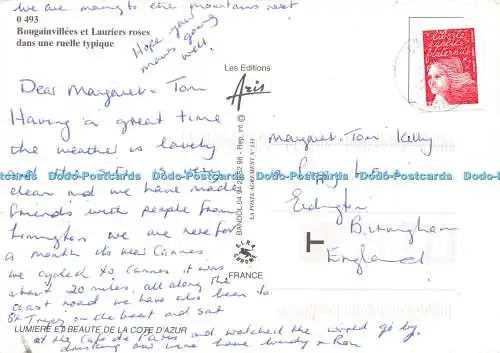 we are moving to the mountains next
0 493
Bougainvillées et Lauriers roses
dans une ruelle typique
Hope your
moms going
well.
Les Editions
Aris
Dear Margaret. Tom
Having a great time
the weather is lovely
and the is very
clean and we have made
friends with people from
we are here for
a month its near Cannes
we cycled to Cannes it was
about 20 miles. all along the
coast road we have also been to
St Tropez on the boat and sat
at the Cafe de Paris and watched the world go by
drinking and wine have + Ron
liberté
égalité
fraternité
Margaret. Tom Kelly
Erdington
Birmingham
England
BANDOL 04 94 29 52 98 - Rep. int. ©
FRANCE
LUMIERE ET BEAUTE DE LA COTE D'AZUR
Dodo-Postcards Dodo-Postcards Dodo-Postcards Dodo-Postcards